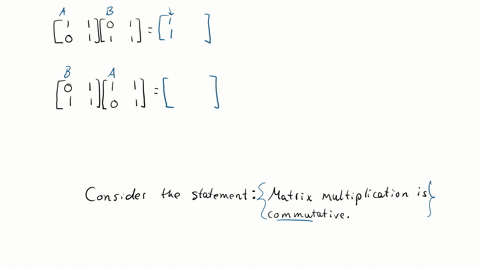 A B
[1 1; 0 1][0 1; 1 1] = [1; 1 ]
B A
[0 1; 1 1][1 1; 0 1] = [ ]
Consider the statement: {Matrix multiplication is
commutative.}